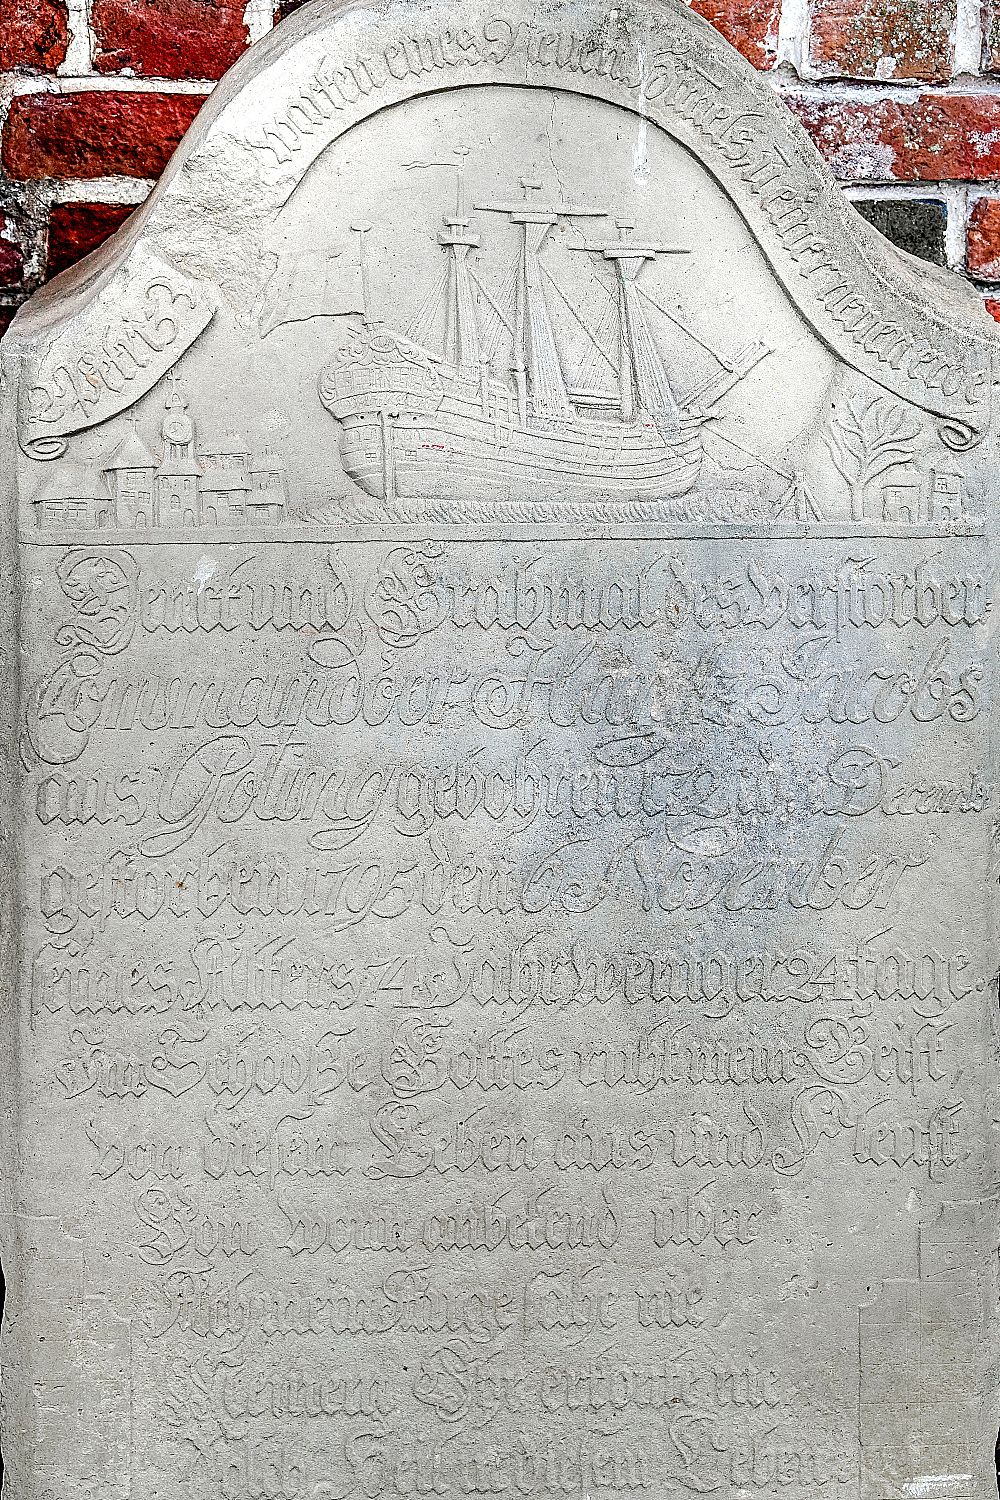 Petri 3
warten eines Neuen Himels, u einer neuen erde
Denck und Grabmal des verstorben
Commandöer Hans Jacobs
aus Götting gebohren 1721 den Decemb
gestorben 1795 den 6 November
seines Alters 74 Jahr weniger 24 tage.
Jm Schooße Gottes ruht mein Geist,
von diesem Leben aus und
Von wenn anbetend über
Ach mein Auge sahe nie,
Meinem Ohr ertönte nie.
diesem Leben